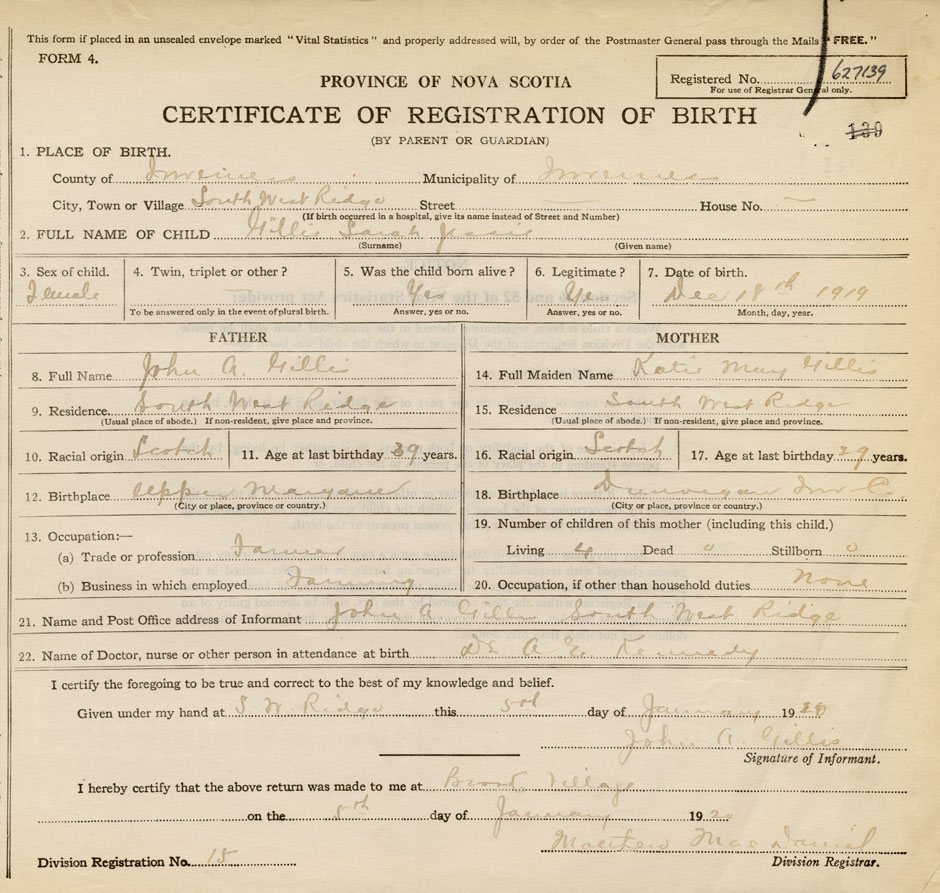 This form if placed in an unsealed envelope marked "Vital Statistics" and properly addressed will, by order of the Postmaster General pass through the Mails "FREE."
FORM 4.
PROVINCE OF NOVA SCOTIA
Registered No. 627139
For use of Registrar General only.
CERTIFICATE OF REGISTRATION OF BIRTH
139
(BY PARENT OR GUARDIAN)
1. PLACE OF BIRTH.
County of Inverness Municipality of Inverness
City, Town or Village South West Ridge Street — House No. —
(If birth occurred in a hospital, give its name instead of Street and Number)
2. FULL NAME OF CHILD Gillis Sarah Jessie
(Surname) (Given name)
3. Sex of child. 4. Twin, triplet or other? 5. Was the child born alive? 6. Legitimate? 7. Date of birth.
Female — Yes Yes Dec 18th 1919
To be answered only in the event of plural birth. Answer, yes or no. Answer, yes or no. Month, day, year.
FATHER MOTHER
8. Full Name John A. Gillis 14. Full Maiden Name Katie May Gillis
9. Residence South West Ridge 15. Residence South West Ridge
(Usual place of abode.) If non-resident, give place and province. (Usual place of abode.) If non-resident, give place and province.
10. Racial origin Scotch 11. Age at last birthday 39 years. 16. Racial origin Scotch 17. Age at last birthday 29 years.
12. Birthplace Upper Margaree 18. Birthplace Dunvegan Inv Co
(City or place, province or country.) (City or place, province or country.)
13. Occupation:— 19. Number of children of this mother (including this child.)
(a) Trade or profession Farmer Living 4 Dead 0 Stillborn 0
(b) Business in which employed Farming 20. Occupation, if other than household duties None
21. Name and Post Office address of Informant John A. Gillis South West Ridge
22. Name of Doctor, nurse or other person in attendance at birth Dr A. E. Kennedy
I certify the foregoing to be true and correct to the best of my knowledge and belief.
Given under my hand at S. W. Ridge this day of January 1920
John A. Gillis
Signature of Informant.
I hereby certify that the above return was made to me at Brook Village
on the 5th day of January 1920
Matthew MacDaniel
Division Registration No. 18 Division Registrar.